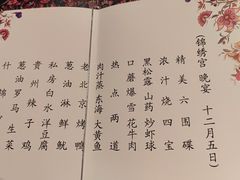 （锦绣宫 晚宴 十二月五日）
精美六围碟
浓汁烧四宝
黑松露山药炒虾球
口蘑爆雪花牛肉
热点两道
肉汁蒸东海大黄鱼
老北京烤鸭
葱油淋鱿
私房白水洋豆腐
贵州辣子鸡
葱油罗马生菜